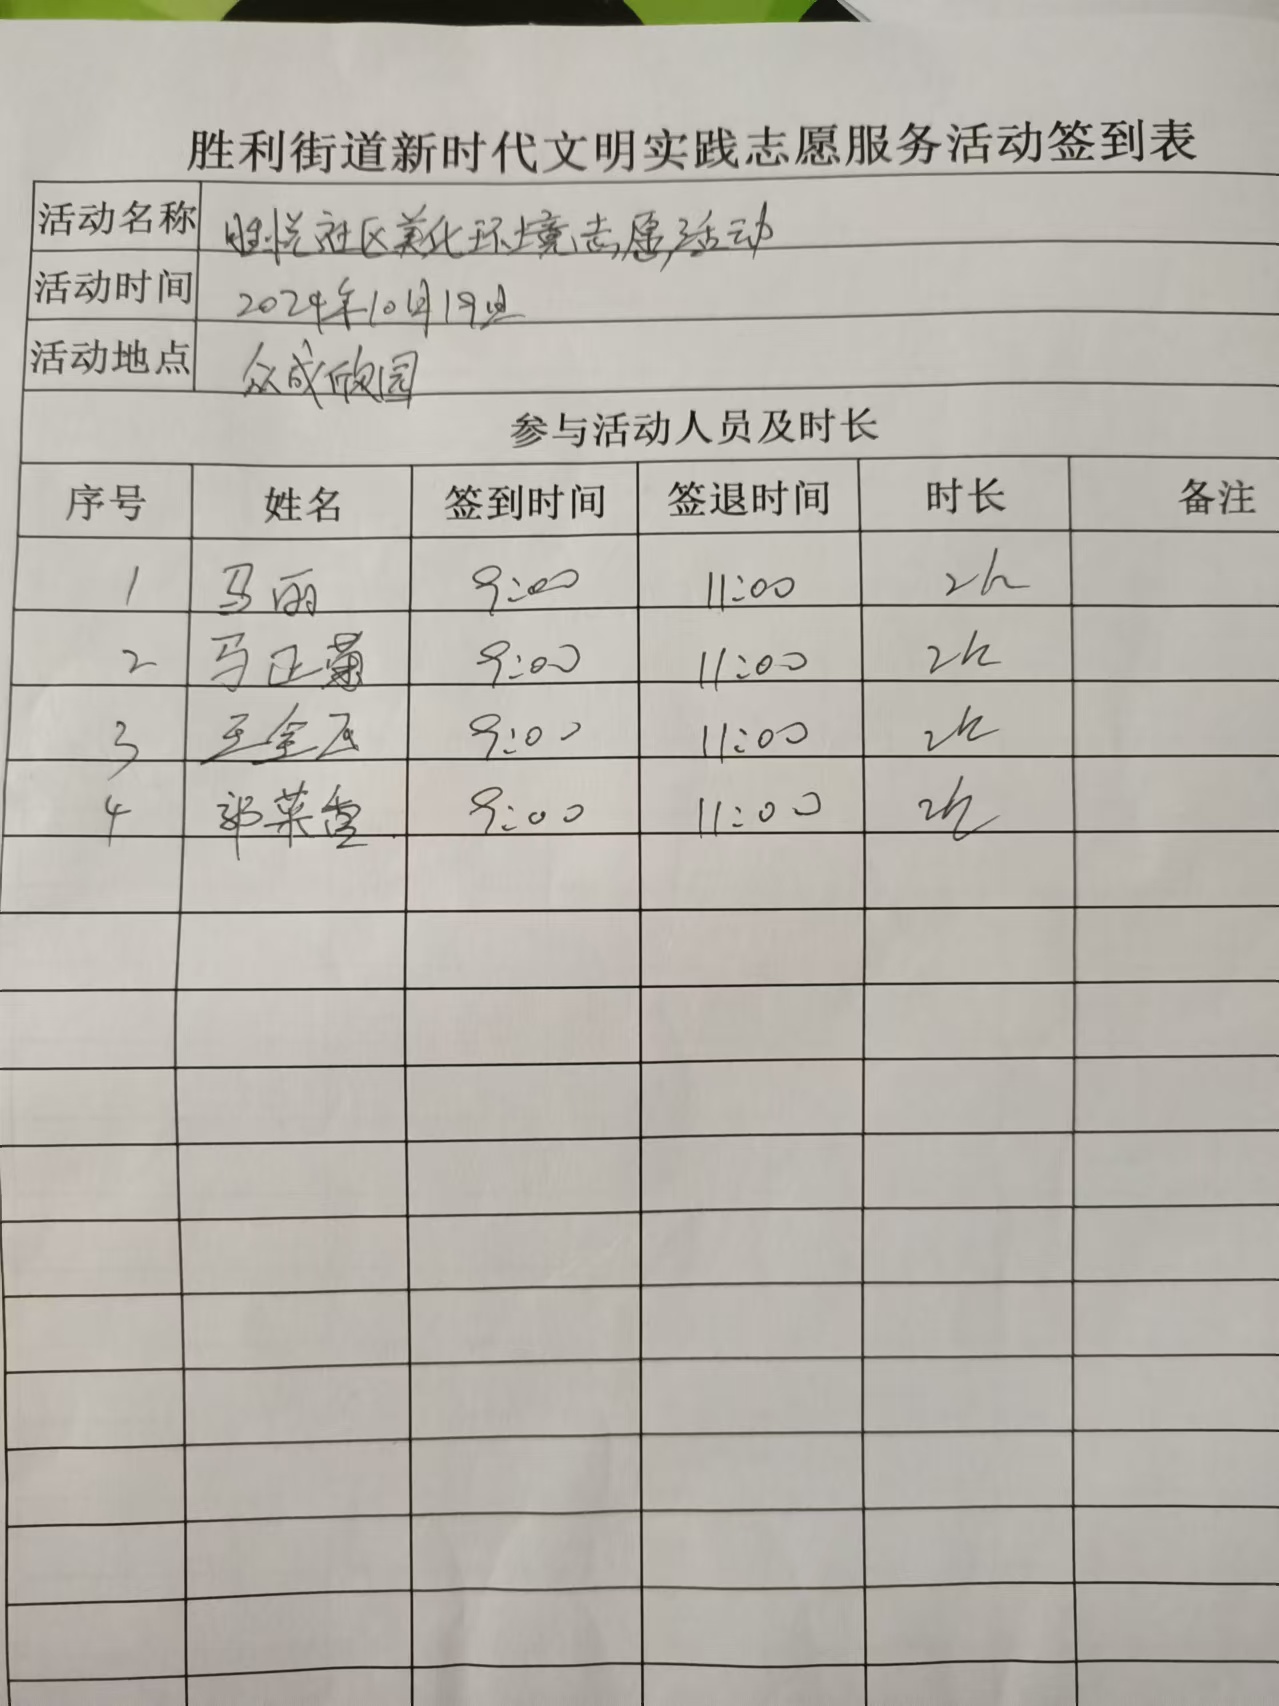 胜利街道新时代文明实践志愿服务活动签到表
活动名称 胜悦社区美化环境志愿活动
活动时间 2024年10月19日
活动地点 众成欣园
参与活动人员及时长
序号 姓名 签到时间 签退时间 时长 备注
1 马丽 9:00 11:00 2h
2 马正菊 9:00 11:00 2h
3 王金 9:00 11:00 2h
4 郭菜香 9:00 11:00 2h